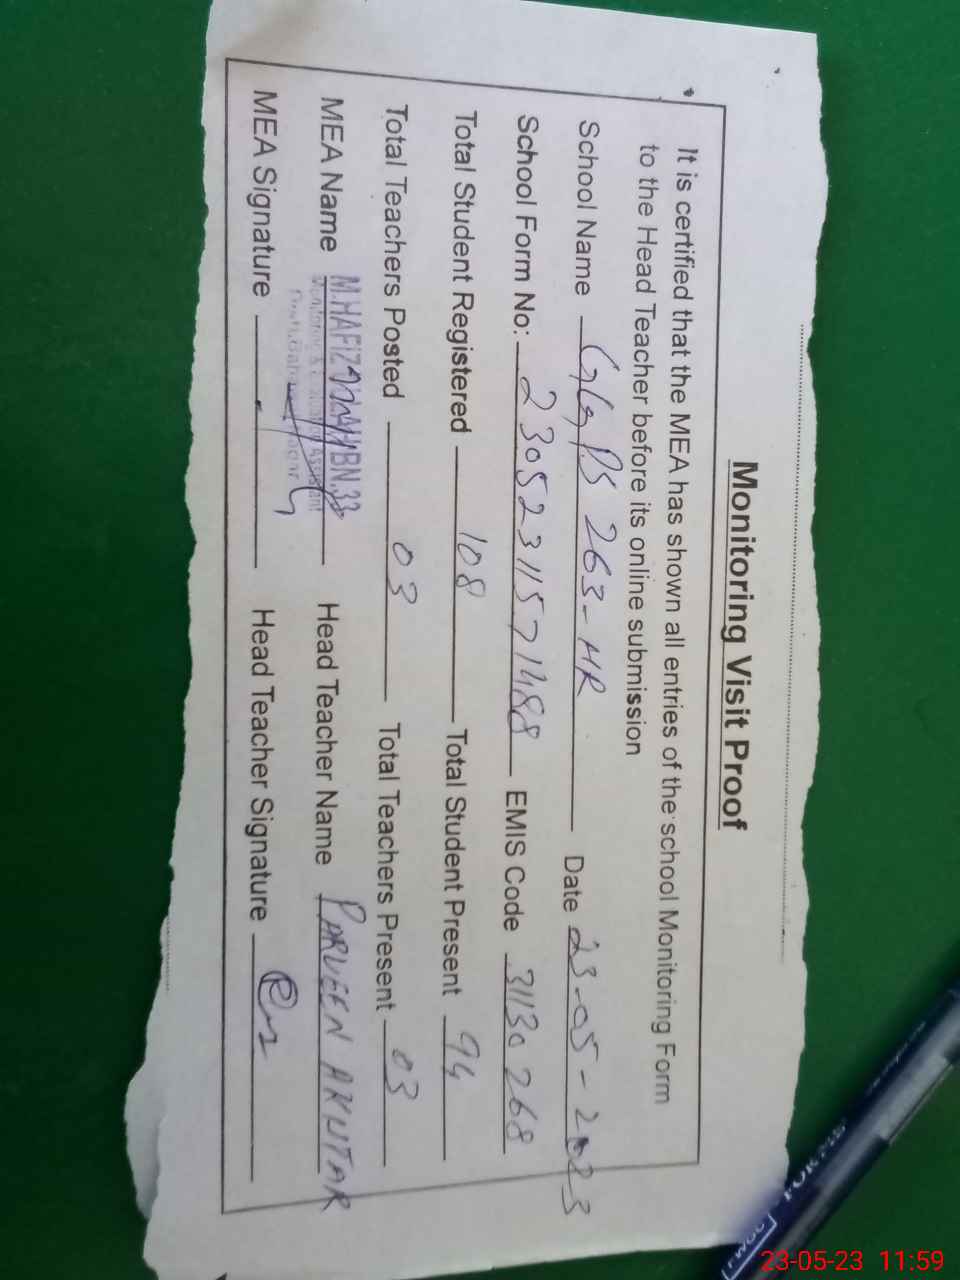 Monitoring Visit Proof
It is certified that the MEA has shown all entries of the school Monitoring Form
to the Head Teacher before its online submission
School Name GGPS 263-HR Date 23-05-2023
School Form No: 23052311571488 EMIS Code 31130268
Total Student Registered 108 Total Student Present 94
Total Teachers Posted 03 Total Teachers Present 03
MEA Name M.HAFIZ BN.33 Head Teacher Name PARVEEN AKHTAR
Monitoring & Assistant
MEA Signature Head Teacher Signature
23-05-23 11:59